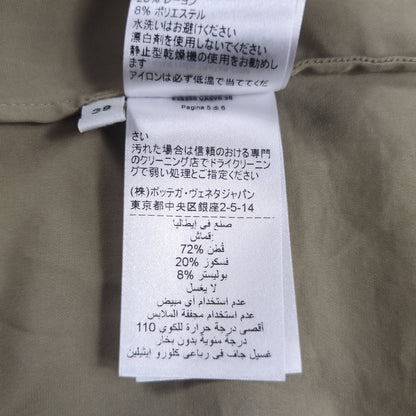 20% レーヨン
8% ポリエステル
水洗いはお避けください
漂白剤を使用しないでください
静止型乾燥機の使用をお勧めし
ます
アイロンは必ず低温で当ててくだ
38
Pagina 5 di 6
さい
汚れた場合は信頼のおける専門
のクリーニング店でドライクリーニン
グで弱い処理とご指定ください
(株)ボッテガ・ヴェネタジャパン
東京都中央区銀座2-5-14
صنع في إيطاليا
قماش:
72% قطن
20% فسكوز
8% بوليستر
لا يغسل
عدم استخدام أي مبيض
عدم استخدام مجففة الملابس
أقصى درجة حرارة للكوي 110
درجة مئوية بدون بخار
غسيل جاف في رباعي كلورو إيثيلين